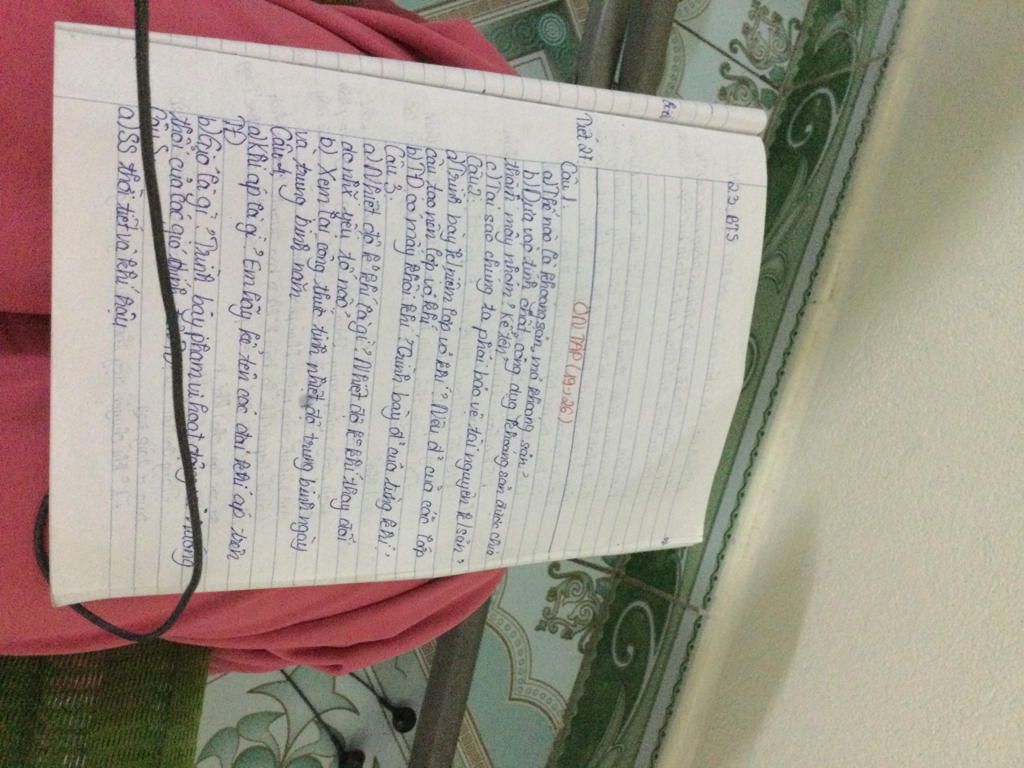 23. BT5
Tiết 27.
ÔN TẬP (19, 26)
Câu 1.
a) Thế nào là khoáng sản, mỏ khoáng sản?
b) Dựa vào tính chất, công dụg khoáng sản được chia
thành mấy nhóm? Kể tên?
c) Tại sao chung ta phải bảo vệ tài nguyên k/sản?
Câu 2.
a) Trình bày k/niệm lớp vỏ khí? Nêu đ² của các lớp
cấu tạo nên lớp vỏ khí
b) TĐ có mấy khối khí? Trình bày đ² của từng khí?
Câu 3.
a) Nhiệt độ k² khí là gì? Nhiệt độ k² khí thay đổi
do nhữ yếu tố nào?
b) Xem lại công thức tính nhiệt độ trung bình ngày
và trung bình năm
Câu 4.
a) Khí áp là gì? Em hãy kể tên các đai khí áp trên
TĐ
b) Gió là gì? Trình bày phạm vi hoạt động, hướng
thổi của các gió chính
Câu 5
a) SS thời tiết và khí hậu